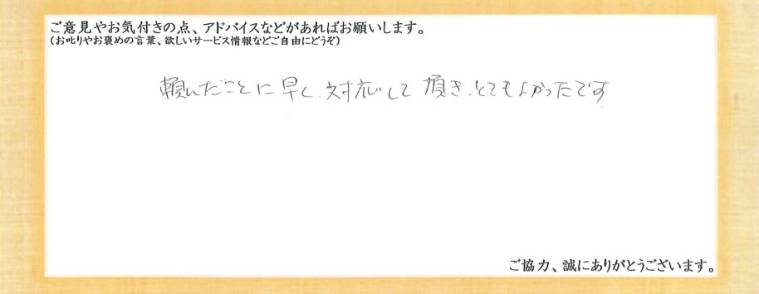 ご意見やお気付きの点、アドバイスなどがあればお願いします。
（お叱りやお褒めの言葉、欲しいサービス情報などご自由にどうぞ）
頼んだことに早く、対応して頂き、とてもよかったです
ご協力、誠にありがとうございます。